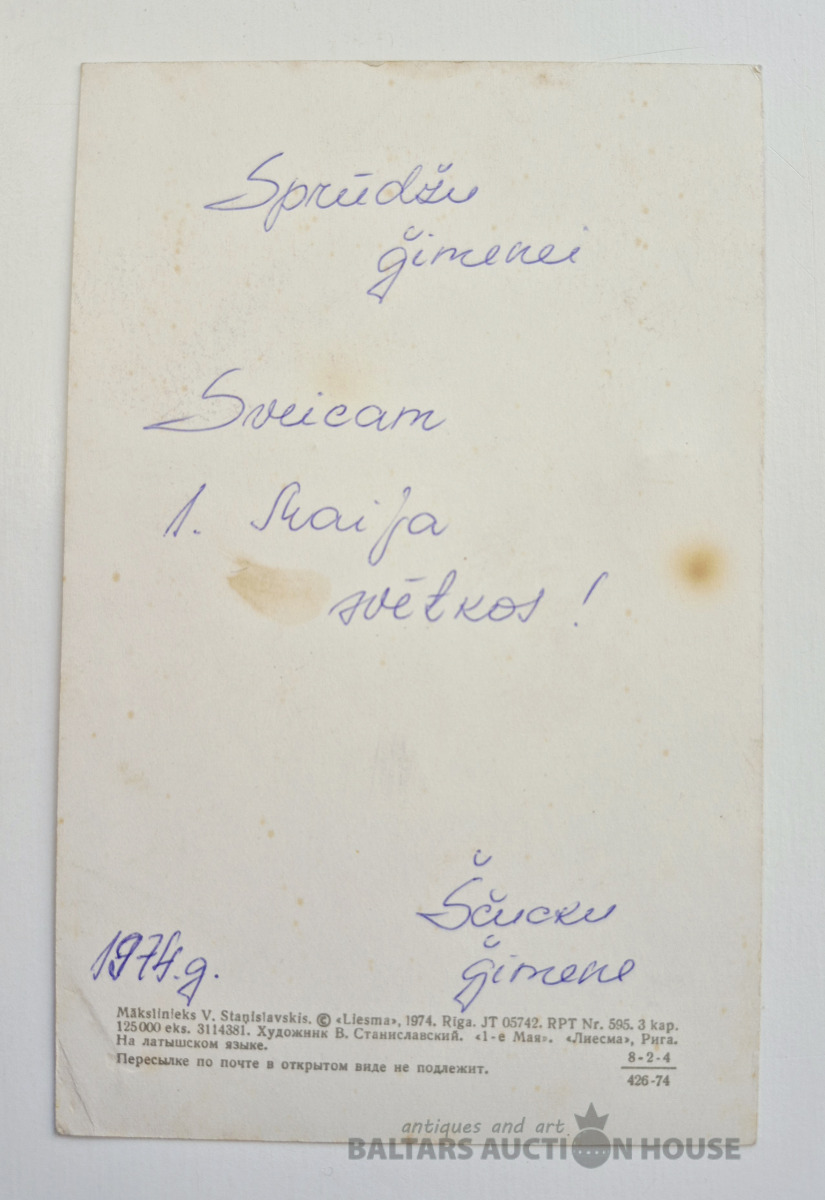 Sprūdžu
ģimenei
Sveicam
1. Maija
svētkos!
Ščucku
ģimene
1974.g.
Mākslinieks V. Staņislavskis. © «Liesma», 1974. Rīga. JT 05742. RPT Nr. 595. 3 kap.
125 000 eks. 3114381. Художник В. Станиславский. «1-е Мая». «Лиесма», Рига.
На латышском языке.
Пересылке по почте в открытом виде не подлежит.
8-2-4
426-74
antiques and art
BALTARS AUCTION HOUSE